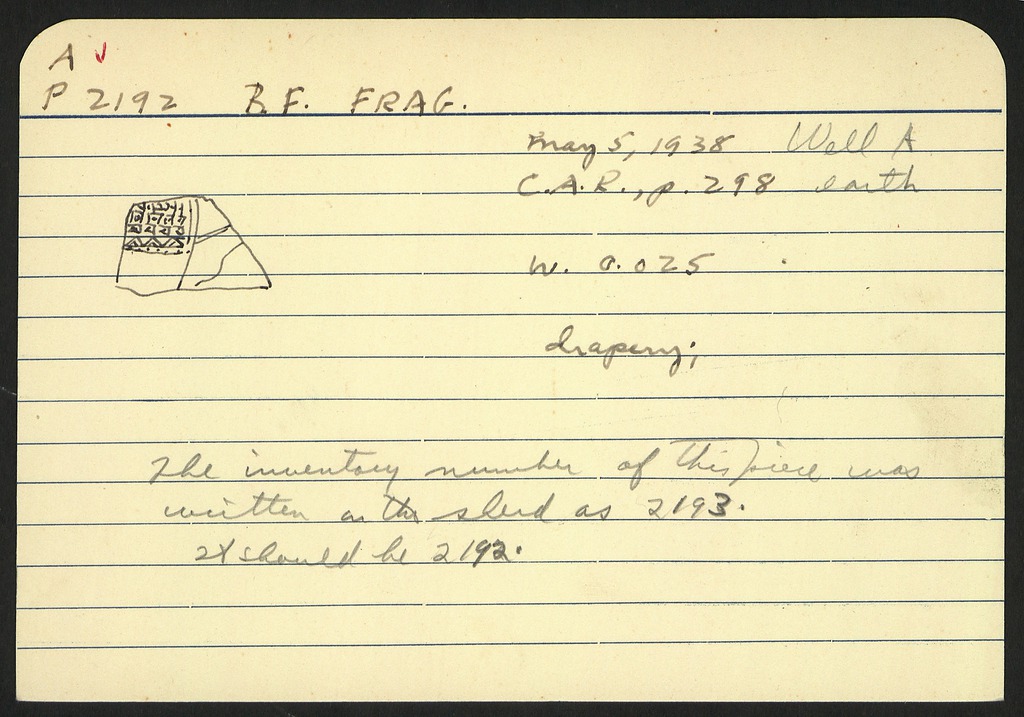 A ✓
P 2192 B.F. FRAG.
May 5, 1938 Well A
C.A.R., p. 298 earth
W. 0.025
drapery;
The inventory number of this piece was
written on the sherd as 2193.
It should be 2192.